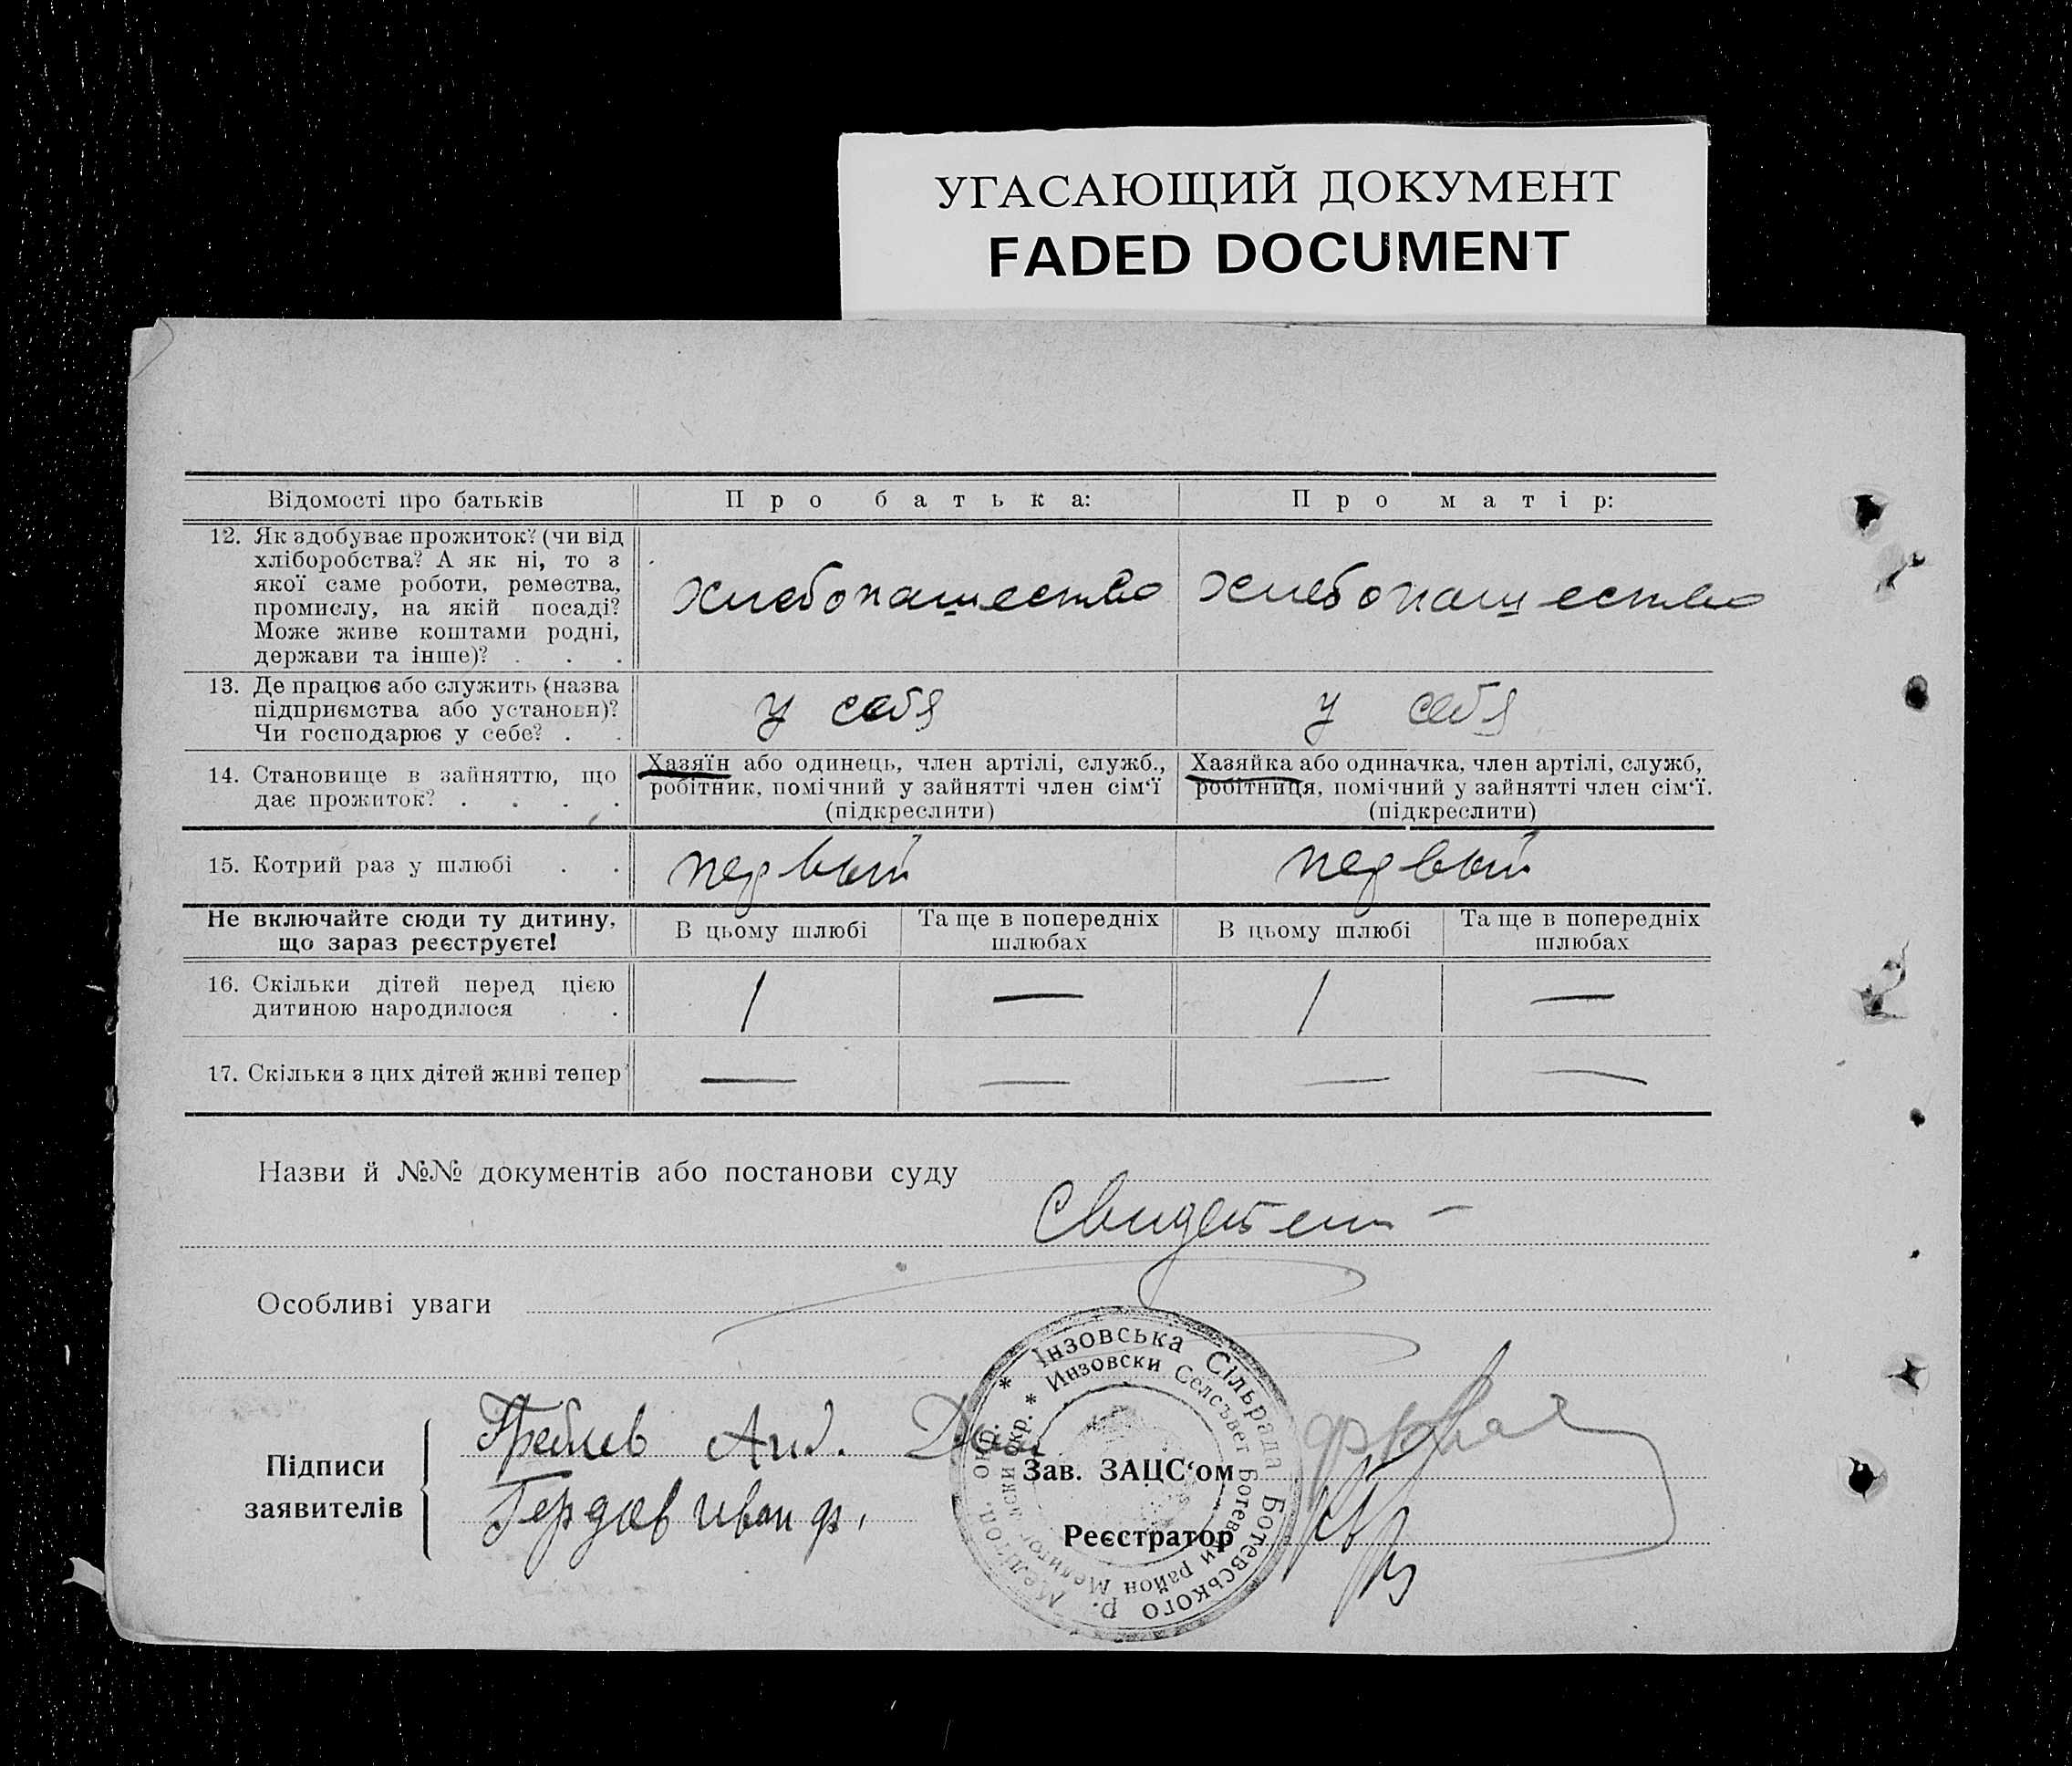 УГАСАЮЩИЙ ДОКУМЕНТ
FADED DOCUMENT
Відомості про батьків
Про батька:
Про матір:
12. Як здобуває прожиток? (чи від
хліборобства? А як ні, то з
якої саме роботи, ремества,
промислу, на якій посаді?
Може живе коштами родні,
держави та інше)? . . .
хлебопашество
хлебопашество
13. Де працює або служить (назва
підприємства або установи)?
Чи господарює у себе? . .
у себя
у себя
14. Становище в зайняттю, що
дає прожиток? . . . .
Хазяїн або одинець, член артілі, служб.,
робітник, помічний у зайнятті член сім'ї
(підкреслити)
Хазяйка або одиначка, член артілі, служб,
робітниця, помічний у зайнятті член сім'ї.
(підкреслити)
15. Котрий раз у шлюбі . .
первый
первый
Не включайте сюди ту дитину,
що зараз реєструєте!
В цьому шлюбі
Та ще в попередніх
шлюбах
В цьому шлюбі
Та ще в попередніх
шлюбах
16. Скільки дітей перед цією
дитиною народилося . .
1
—
1
—
17. Скільки з цих дітей живі тепер
—
—
—
—
Назви й №№ документів або постанови суду
Свидетели -
Особливі уваги
* Інзовська Сільрада Ботевського р. Мелітоп. окр.
* Инзовски Селсъвет Ботевски район Мелитополски окр.
Підписи
заявителів
Анд.
Иван ф.
Зав. ЗАЦС'ом
Реєстратор